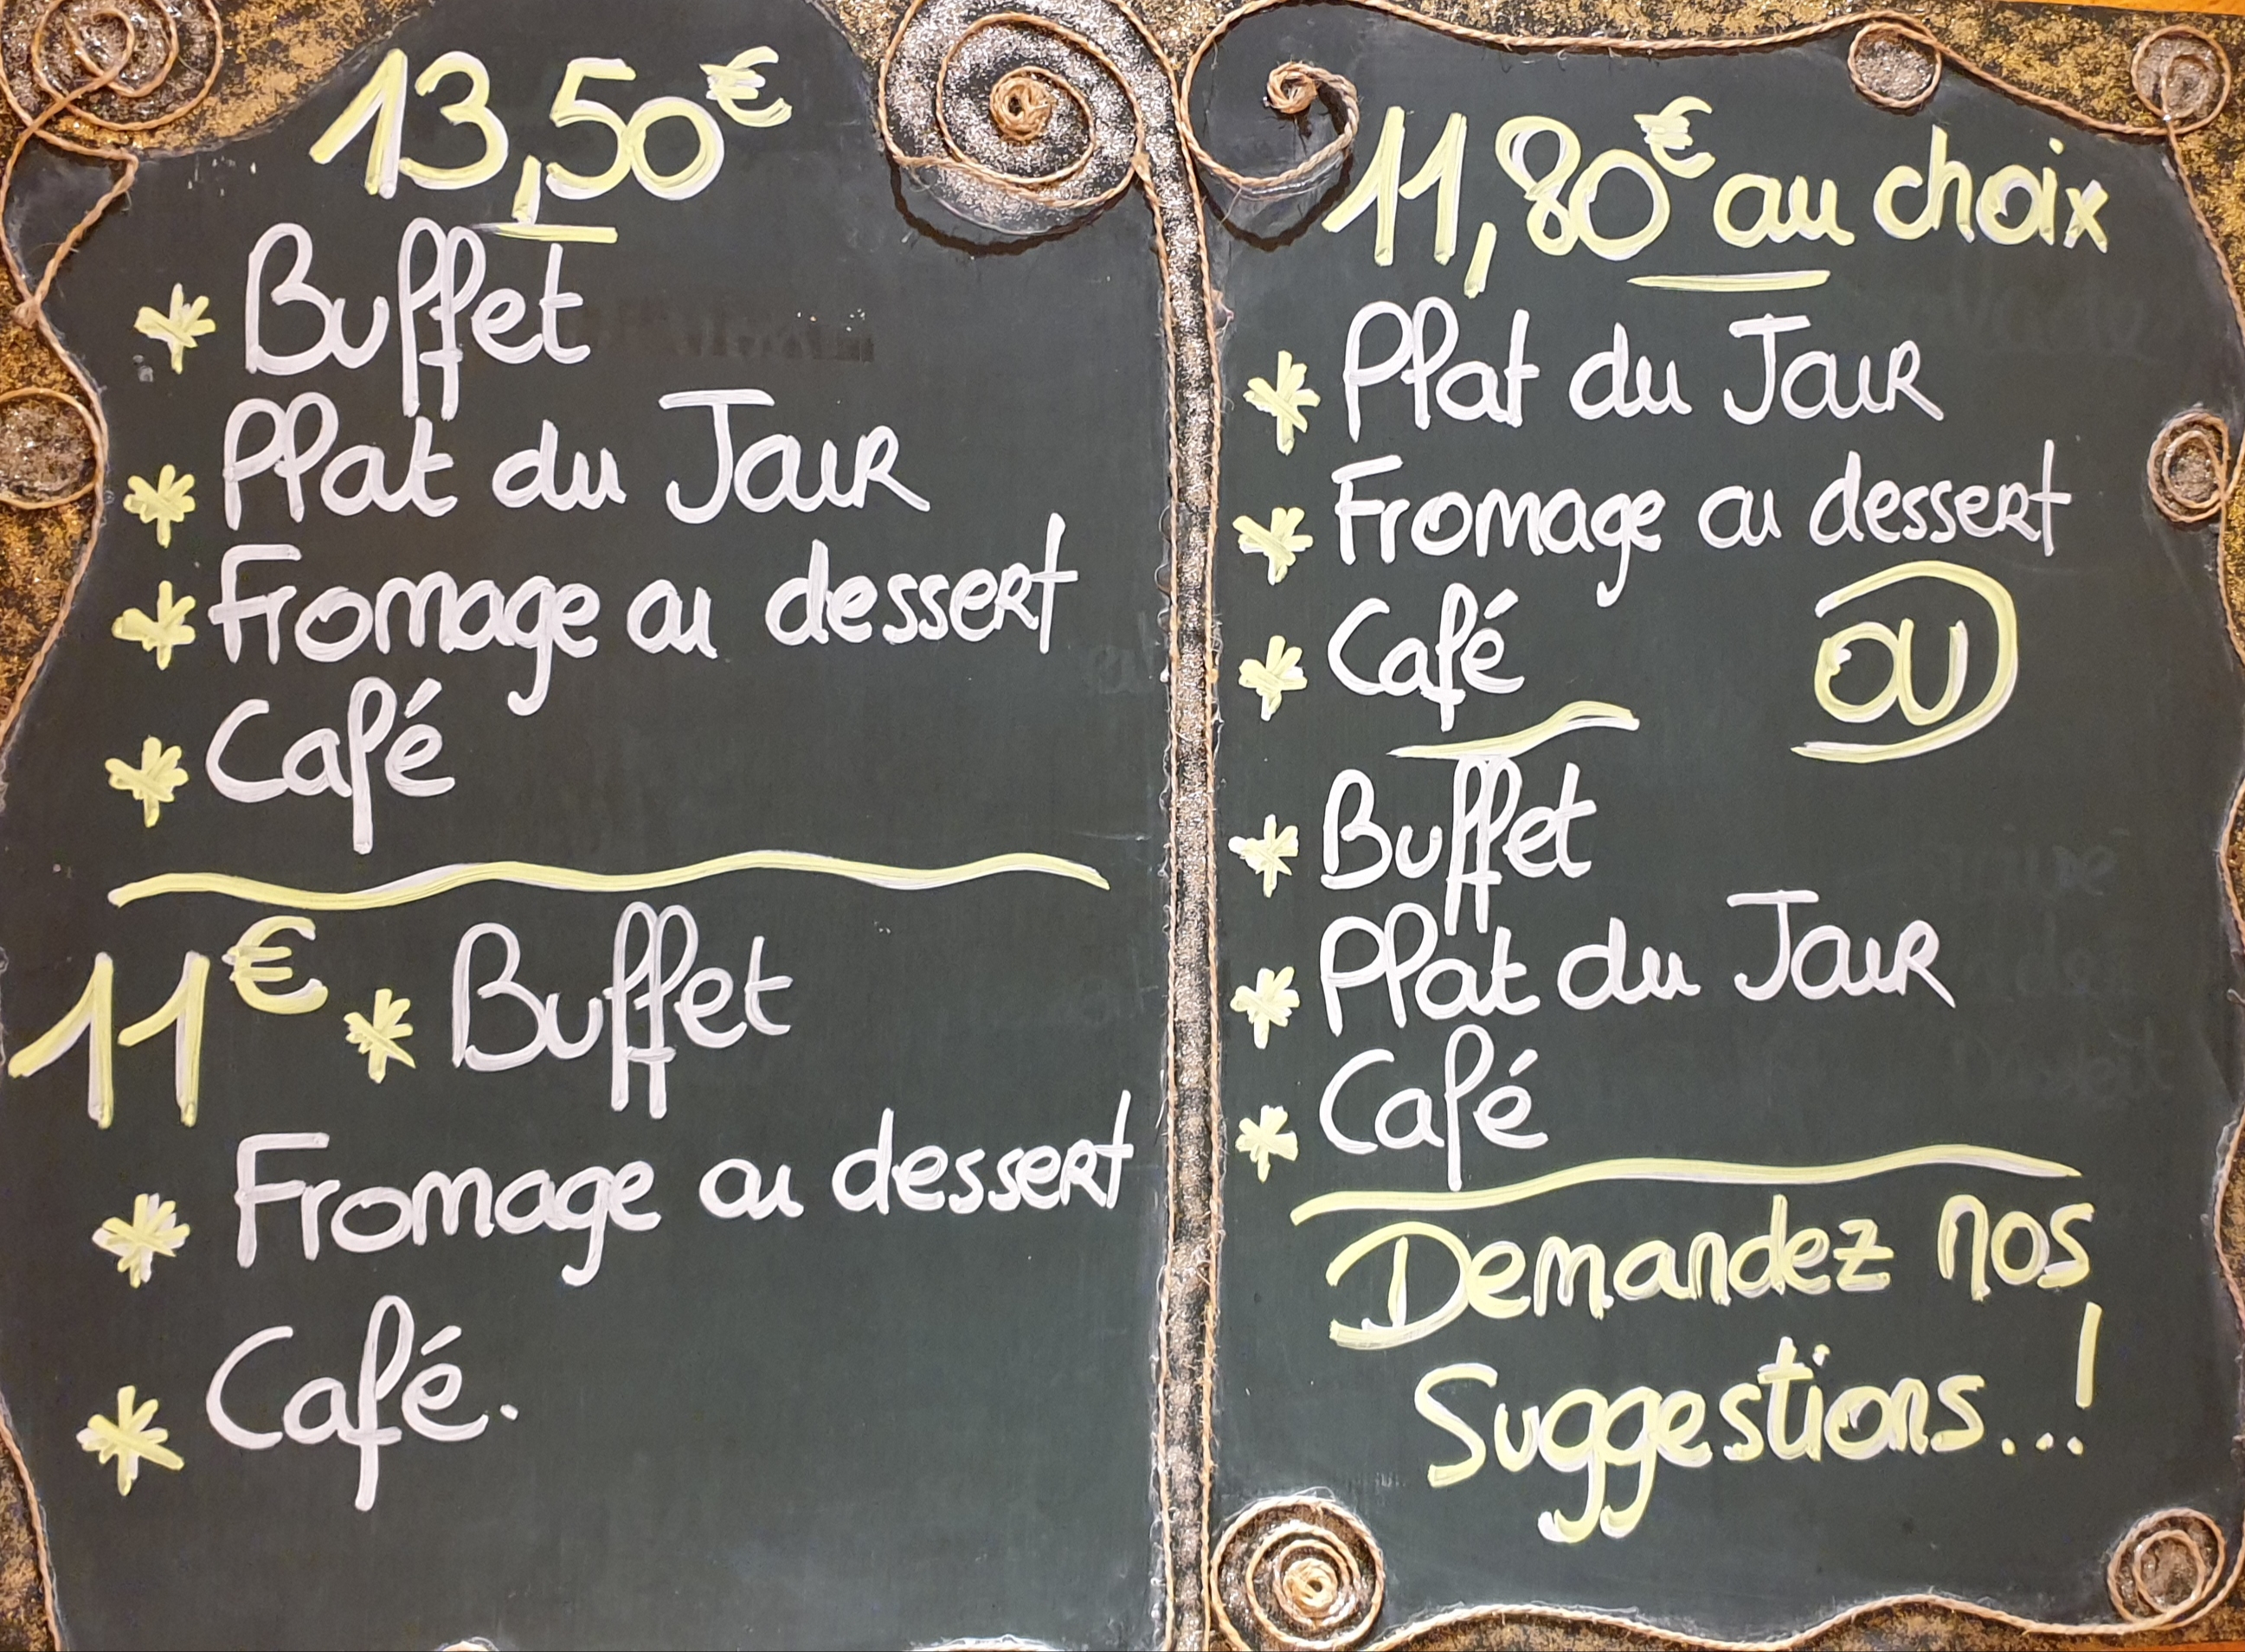 13,50€
* Buffet
* Plat du Jour
* Fromage ou dessert
* Café
11€ * Buffet
* Fromage ou dessert
* Café.
11,80€ au choix
* Plat du Jour
* Fromage ou dessert
* Café OU
* Buffet
* Plat du Jour
* Café
Demandez nos
Suggestions...!